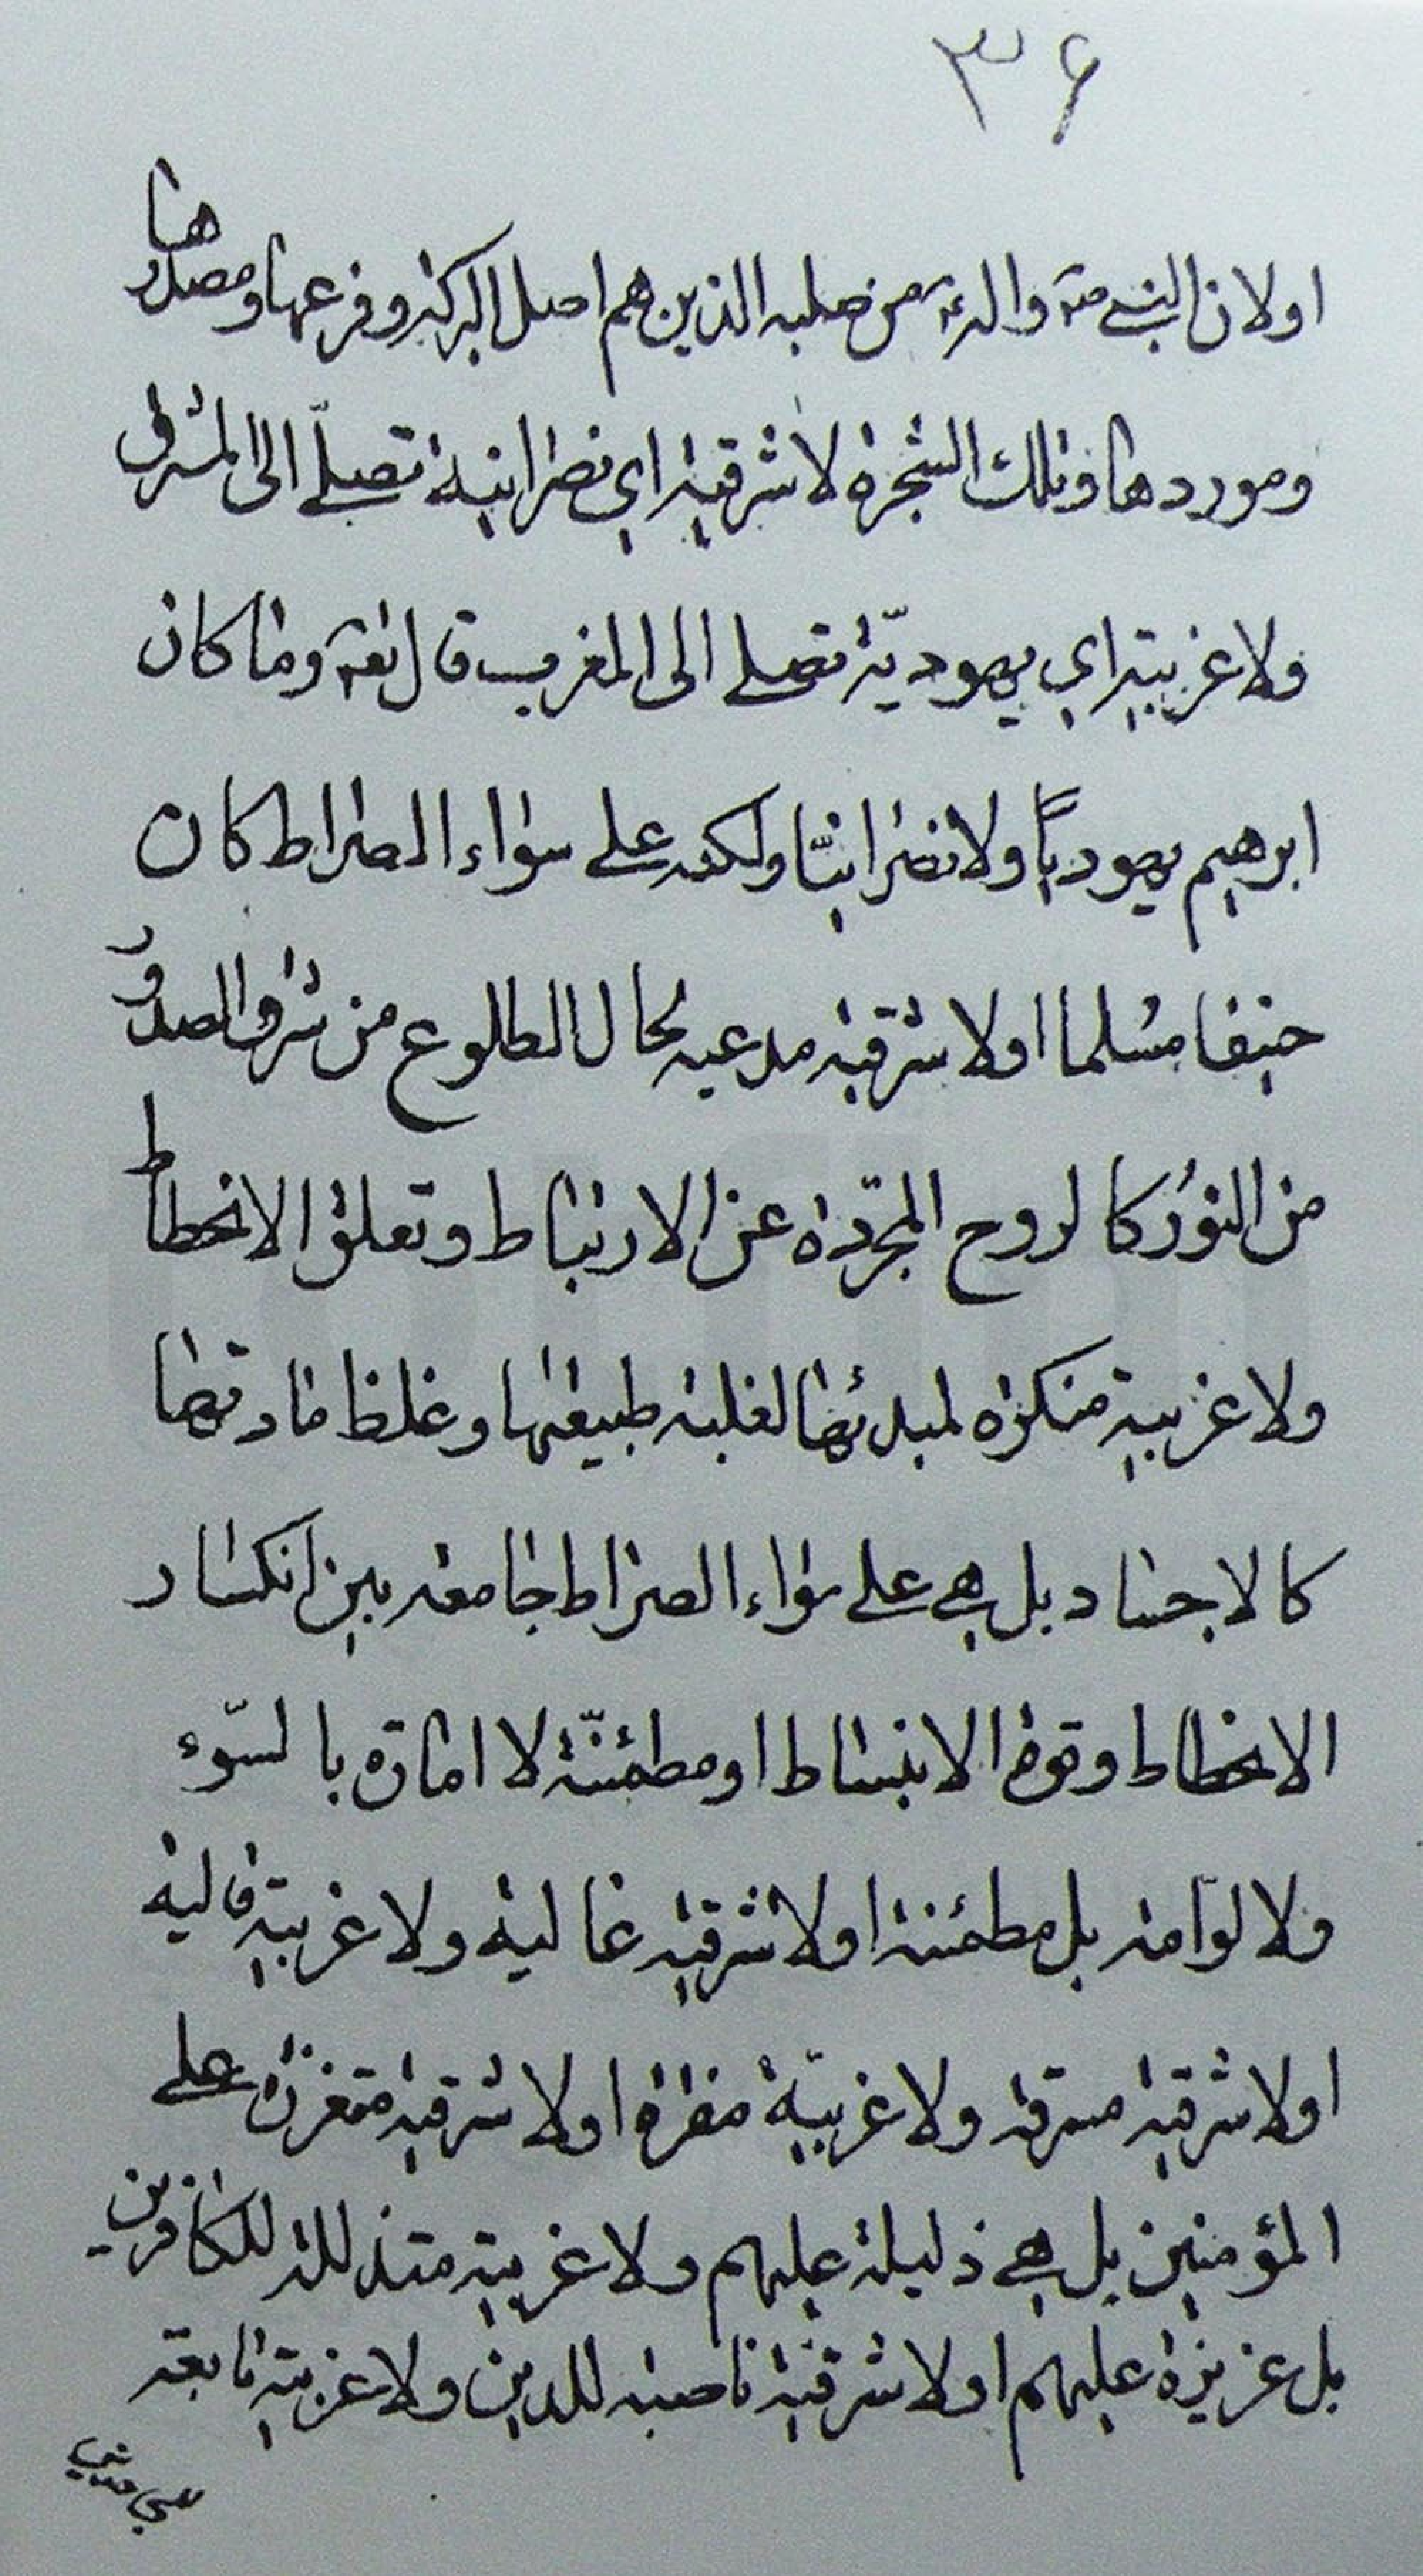 ۳۶
او لان النبي ص والائمة من صلبه الذين هم اصل البركة و فرعها و مصدرها
و موردها و تلك الشجرة لا شرقية اي نصرانية تصلّي الى المشرق
ولا غربية اي يهوديّة تصلي الى المغرب قال تعه وما كان
ابرهيم يهودياً ولا نصرانيّا ولكنه علي سواء الصراط كان
حنيفا مسلما او لا شرقية مدعيه لحال الطلوع من شرق الصدور
من النور كالروح المجرّدة عن الارتباط و تعلق الانحطاط
ولا غربية منكرة لمبدئها لغلبة طبيعتها و غلظ مادتها
كالاجساد بل هي علي سواء الصراط جامعه بين انكسار
الانحطاط و قوة الانبساط او مطمئنّة لا امارة بالسّوء
ولا لوّامه بل مطمئنة او لا شرقية غالية ولا غربية قالية
او لا شرقية مشرقة ولا غربيّة او لا شرقية متعززة علي
المؤمنين بل هي ذليلة عليهم ولا غربية متذللة للكافرين
بل عزيزة عليهم او لا شرقية ناصبة للدين ولا غربية تابعة